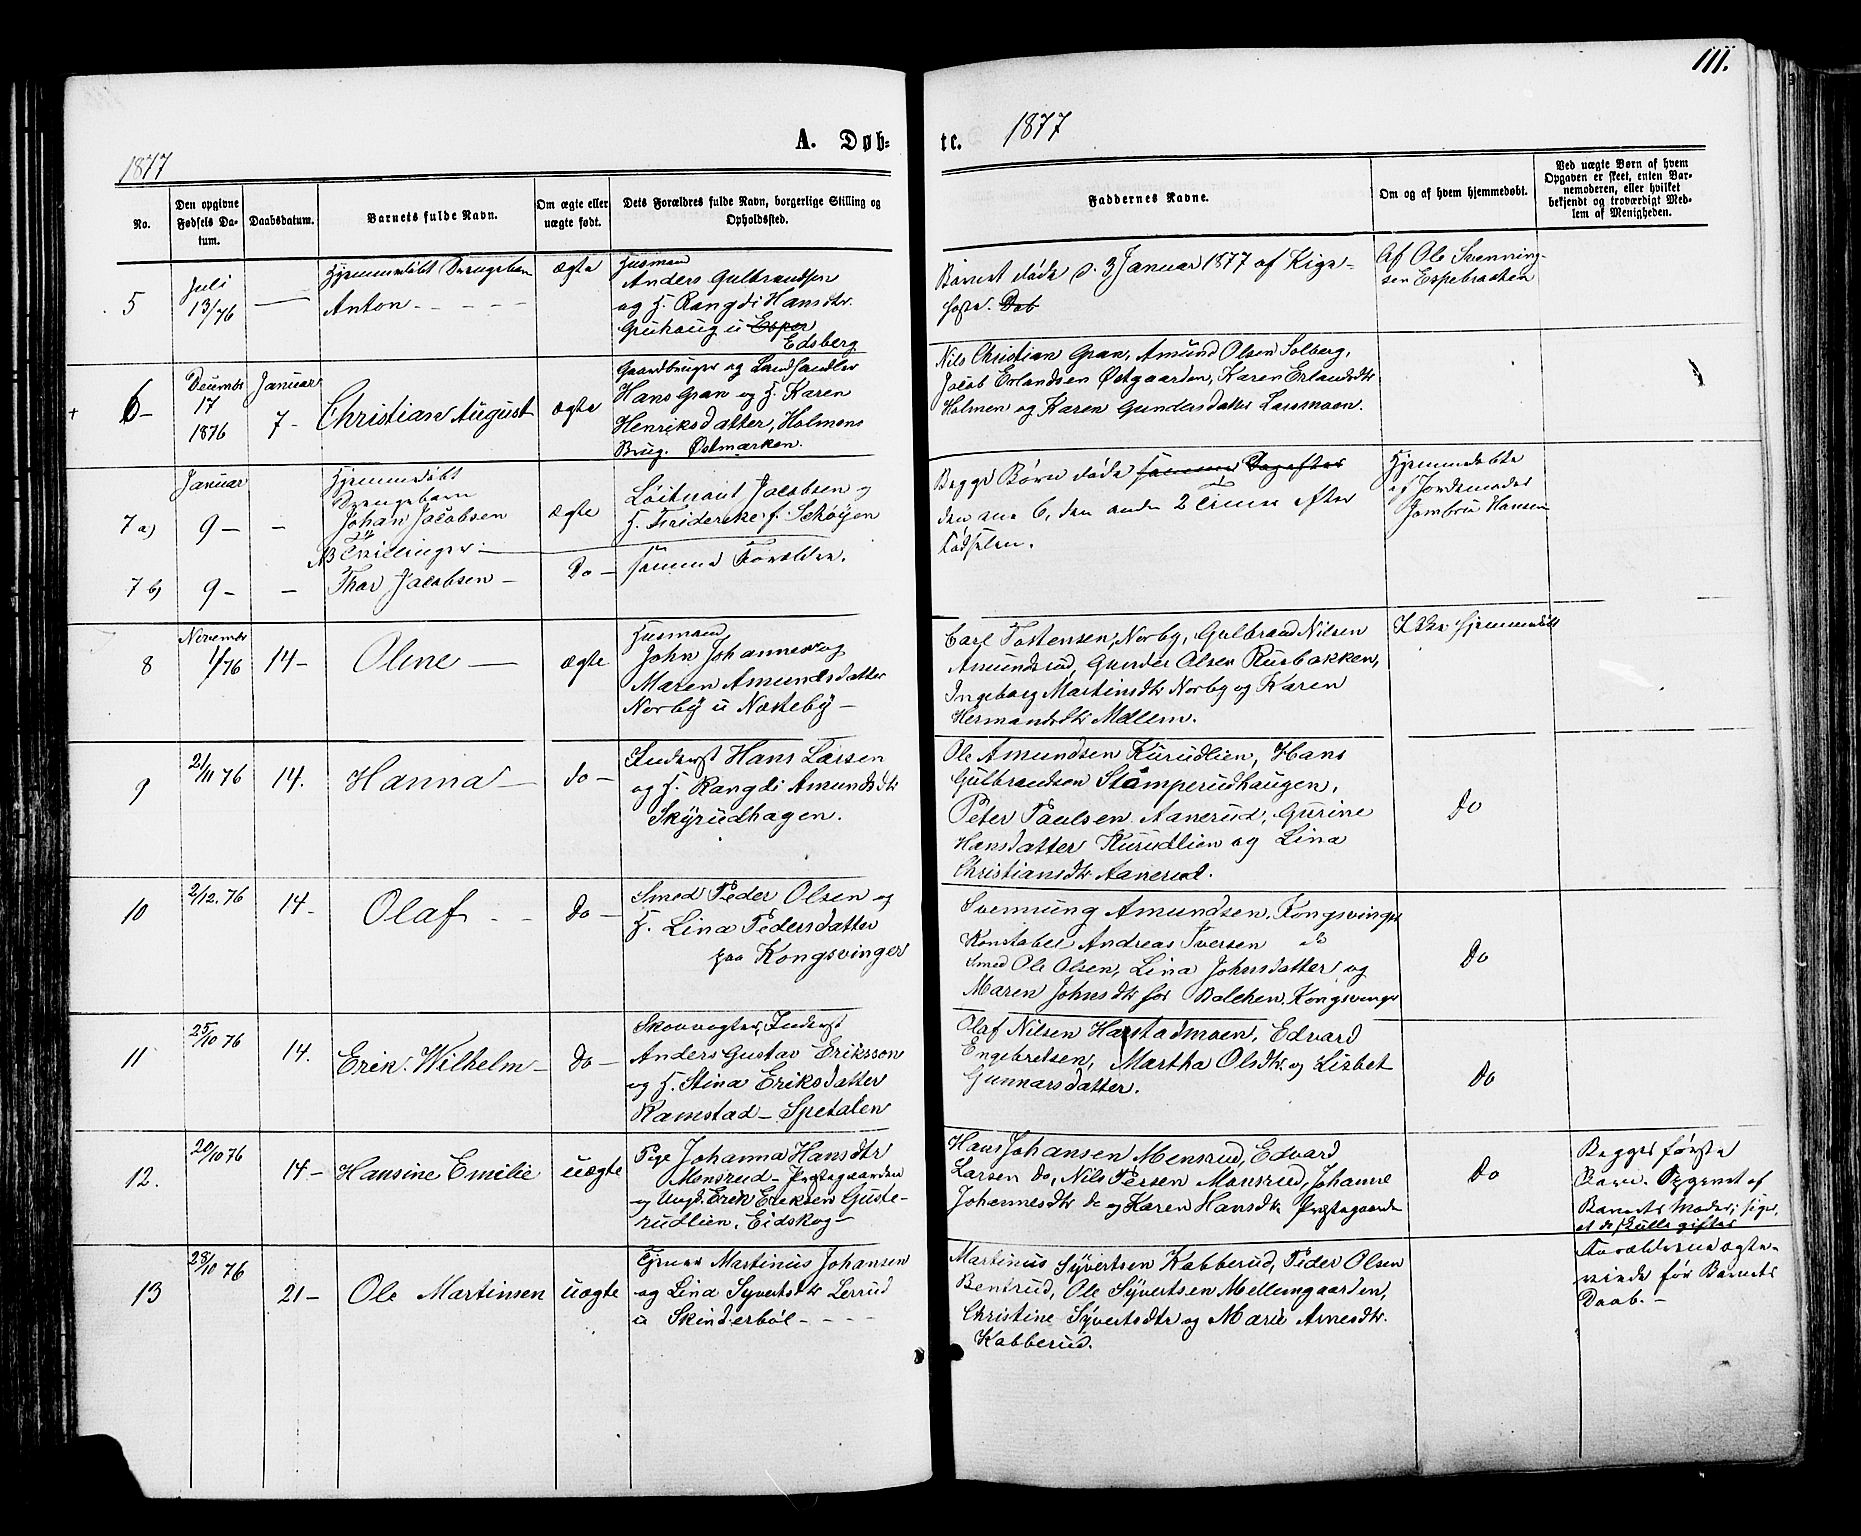 111.
1877
A. Døb-
te.
1877
No.
Den opgivne Fødsels Da-
tum.
Daabsdatum.
Barnets fulde Navn.
Om ægte eller
uægte født.
Dets Forældres fulde Navn, borgerlige Stilling og
Opholdssted.
Faddernes Navne.
Om og af hvem hjemmedøbt.
Ved uægte Børn af hvem
Opgaven er skeet, enten Bar-
nemoderen, eller hvilket
bekjendt og troværdigt Med-
lem af Menigheden.
5
Juli
13/76
Hjemmedøbt Drengebarn
Anton
ægte
Husmand
Anders Gulbrandsen
og H. Rangdi Hansdtr.
Gruhaug u Esper
Edsberg
Barnet døde d. 3 Januar 1877 af Kig-
hoste. Døb
Af Ole Svenning-
sen Espebraaten
6-
Decembr
17
1876
Januar
7-
Christian August
ægte
Gaardbruger og Landhandler
Hans Gran og H. Karen
Henriksdatter, Holmens
Brug. Østmarken.
Nils Christian Gran, Amund Olsen Solberg,
Jacob Erlandsen Østgaarden, Karen Erlandsdtr
Holmen og Karen Gundersdatter Lassmoen.
7 a)
Januar
9-
-
Hjemmedøbt
Drengebarn
Johan Jacobsen
NB Tvillinger
ægte
Løitnant Jacobsen og
H. Fridereke f. Schøyen
Begge Børn døde samme Dag efter
den ene 6, den anden 2 Timer efter
Fødselen.
Hjemmedøbte
af Jordemoder
Jambru Hansen
7 b)
9-
-
Thor Jacobsen -
Do -
samme Forældre.
8
Novembr
1/76
14-
Oline -
ægte
Husmand
John Johannes og
Maren Amundsdatter
Norby u Nokteby -
Carl Tostensen, Norby, Gulbrand Nilsen
Amundsrud, Gunder Olsen Rusbakken,
Ingeborg Martinsdtr Norby og Karen
Hermandsdtr Mellem.
Ikke hjemmedøbt
9
21/11 76
14.
Hanna -
do -
Inderst Hans Larsen
og H. Rangdi Amundsdtr
Skyrudhagen.
Ole Amundsen Kurudlien, Hans
Gulbrandsen Stømperudhaugen,
Peter Paulsen Aanerud, Gurine
Hansdatter Kurudlien og Lina
Christiansdtr Aanerud.
Do
10
2/12. 76
14-
Olaf - -
do -
Smed Peder Olsen og
H. Lina Pedersdatter
paa Kongsvinger
Svennung Amundsen, Kongsvinger
Konstabel Andreas Iversen do
Smed Ole Olsen, Lina Johnsdatter og
Maren Johnsdtr for Balchen, Kongsvinger
Do
11
25/10 76
14.
Erik Wilhelm -
Do -
Skovvogter, Inderst
Anders Gustav Eriksson
og H. Stina Eriksdatter
Ramstad - Spetalen
Olaf Nilsen Harstadmoen, Edvard
Engebretsen, Martha Olsdtr. og Lisbet
Gunnarsdatter.
Do
12.
20/10 76
14-
Hansine Emilie
uægte
Pige Johanna Hansdtr
Monsrud - Prstegaarden
og Ungk. Erik Eriksen Guste-
rudlien, Eidskog -
Hans Johansen Mensrud, Edvard
Larsen do, Nils Persen Monsrud, Johanne
Johannesdtr do og Karen Hansdtr Prstegaarden
Do
Begges første
Barn. Opgivet af
Barnets Moder; siger,
at de skulle giftes
13
28/10 76
21-
Ole Martinsen
uægte
Tjener Martinius Johansen
og Lina Syvertsdtr Lerrud
u Skinderbøl - - - -
Martinus Syvertsen Kabberud, Peder Olsen
Bentrud, Ole Syvertsen Mellemgaarden,
Christine Syvertsdtr og Marie Arnesdtr.
Kabberud.
Forældrene ægte-
viede før Barnets
Daab. -